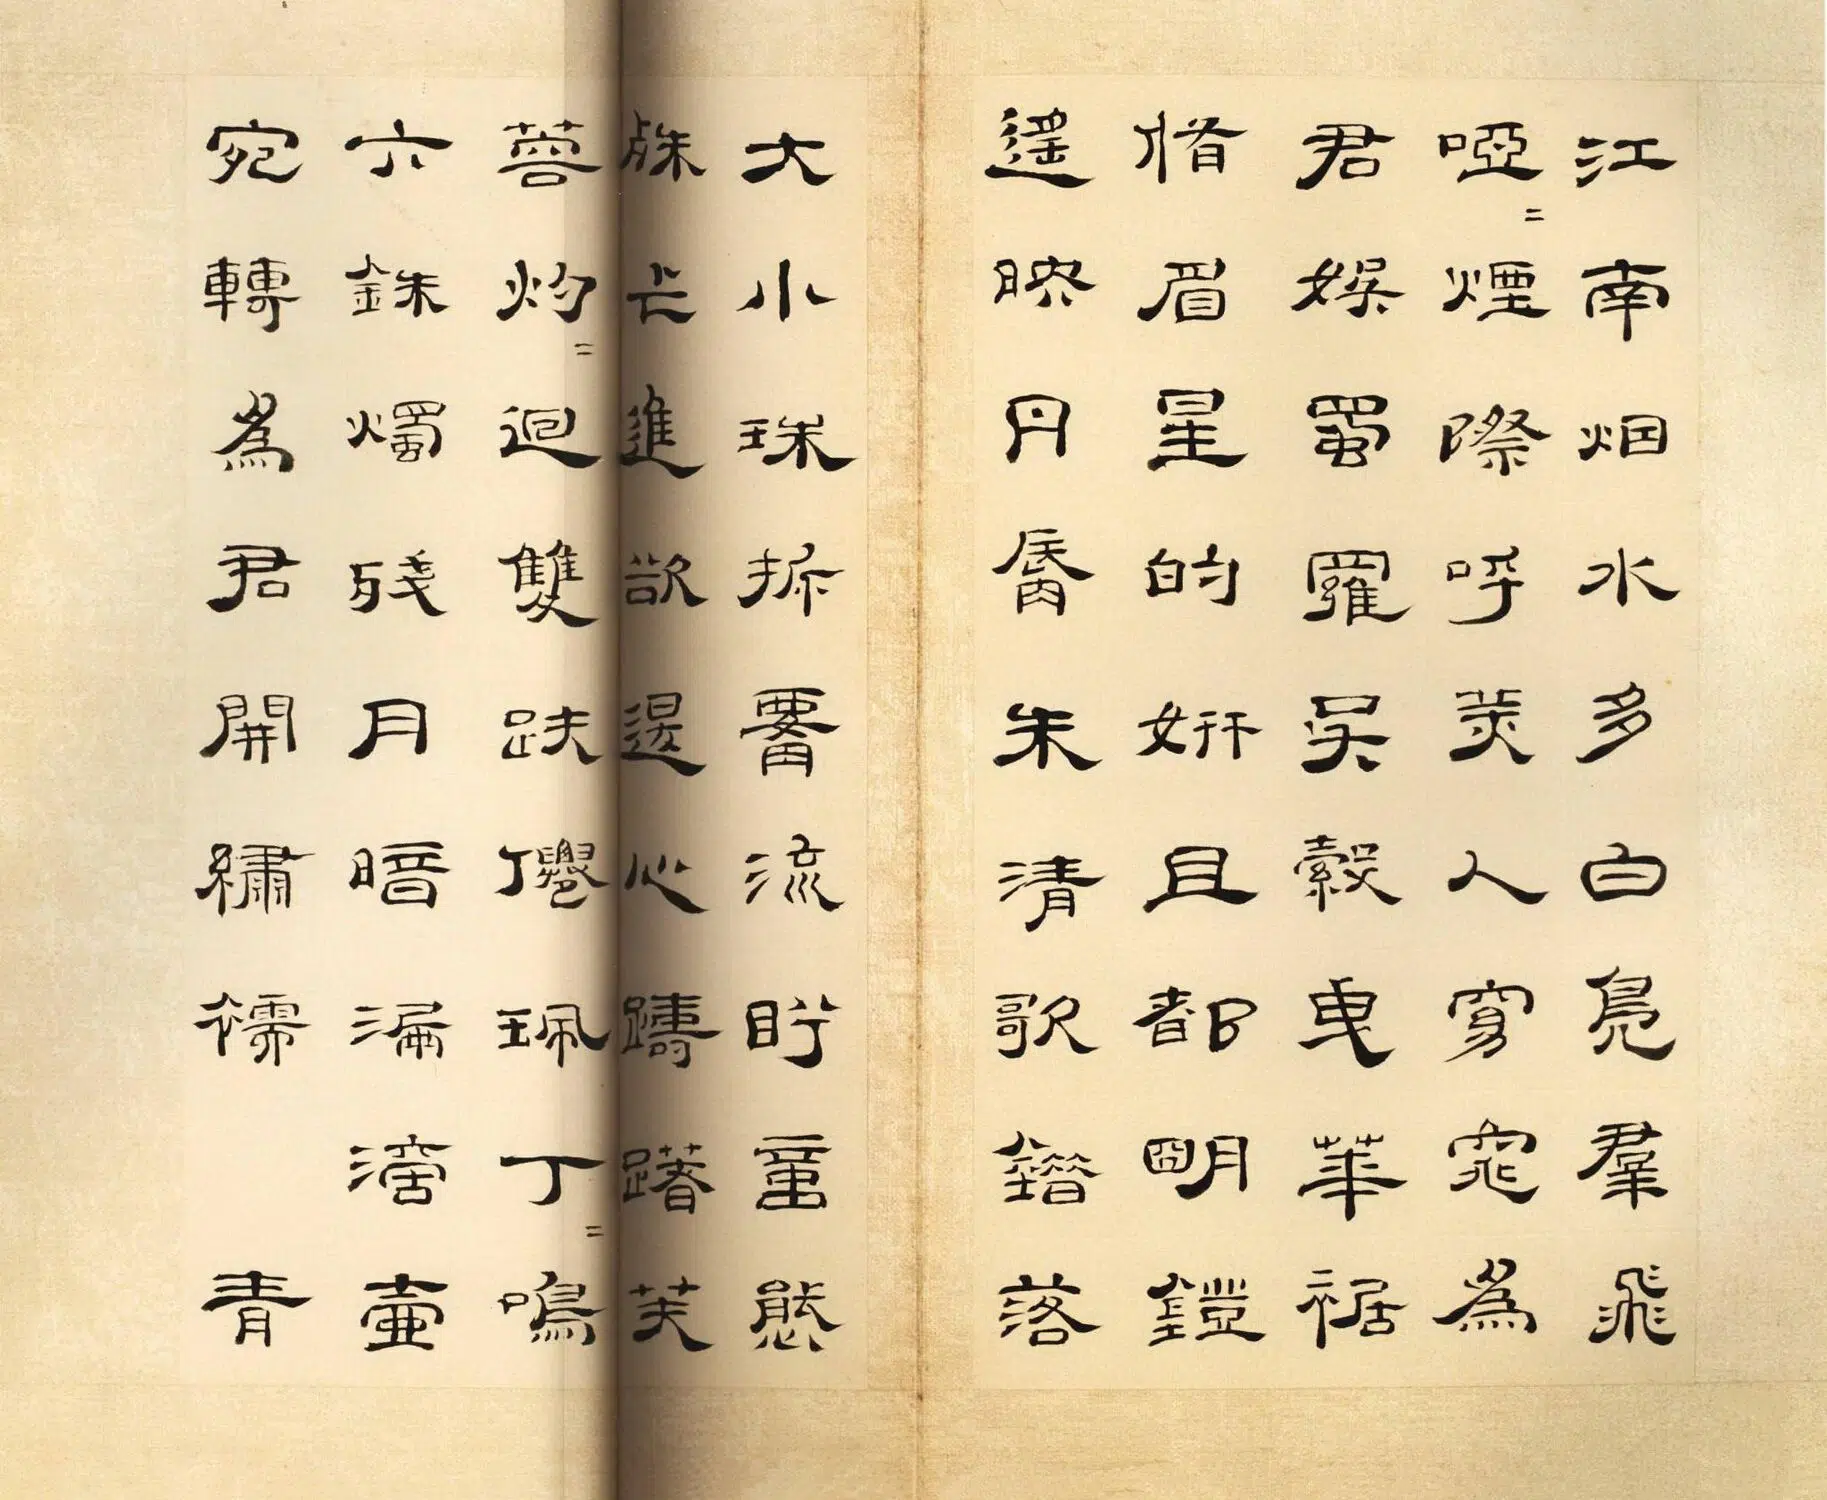 江南烟水多白鳧羣飛
啞〻煙際呼美人窈窕為
君娛蜀羅吳縠曳華裾
脩眉星的妍且都明鐙
遥映丹脣朱清歌錯落
大小珠拆流盻童態
殊乍進欲退心躊躇芙
蓉灼〻迴雙趺僊珮丁〻鳴
六銖燭殘月暗漏滴壺
宛轉為君開繡襦 青